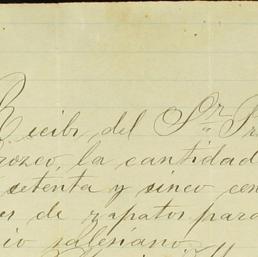 Recibi del Sr. Pr
rozco, la cantidad
setenta y cinco cen
es de zapatos para
io salesiano